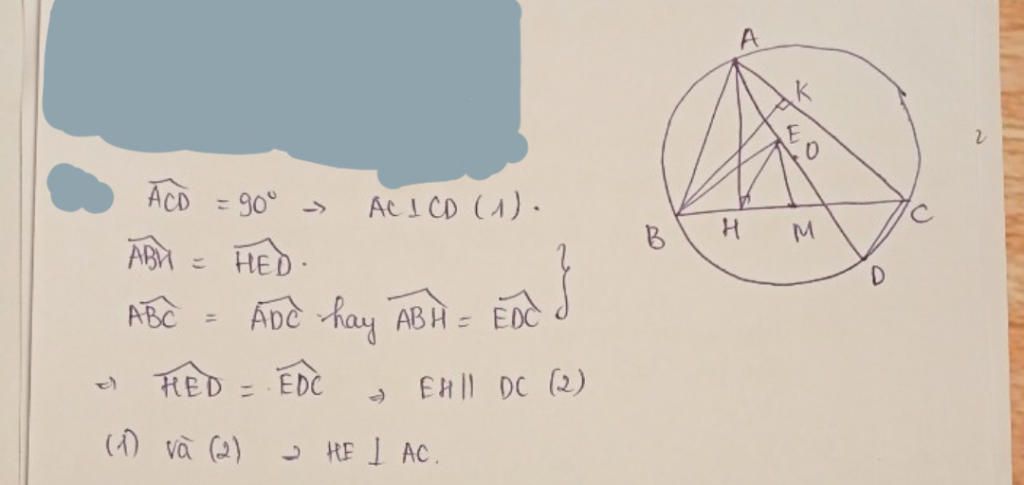 ACD = 90° → AC⊥CD (1).
ABH = HED.
ABC = ADC hay ABH = EDC
=) HED = EDC → EH || DC (2)
(1) và (2) → HE ⊥ AC.
A
K
E
O
B
H
M
C
D